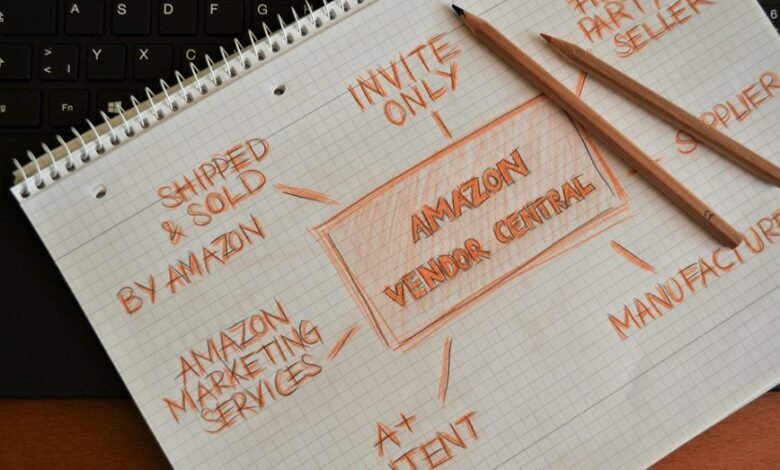 A S D F G H
Y X C V
Fn
INVITE
ONLY
PARTY
SELLER
SUPPLIER
SHIPPED
& SOLD
BY AMAZON
AMAZON
VENDOR CENTRAL
MANUFACTURE
AMAZON
MARKETING
SERVICES
A+
NTENT